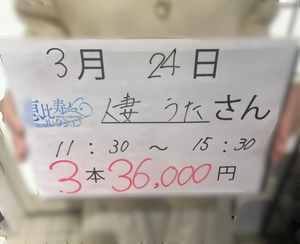 3月 24日
恵比寿
人妻 うた さん
11:30 ～ 15:30
3本 36,000円